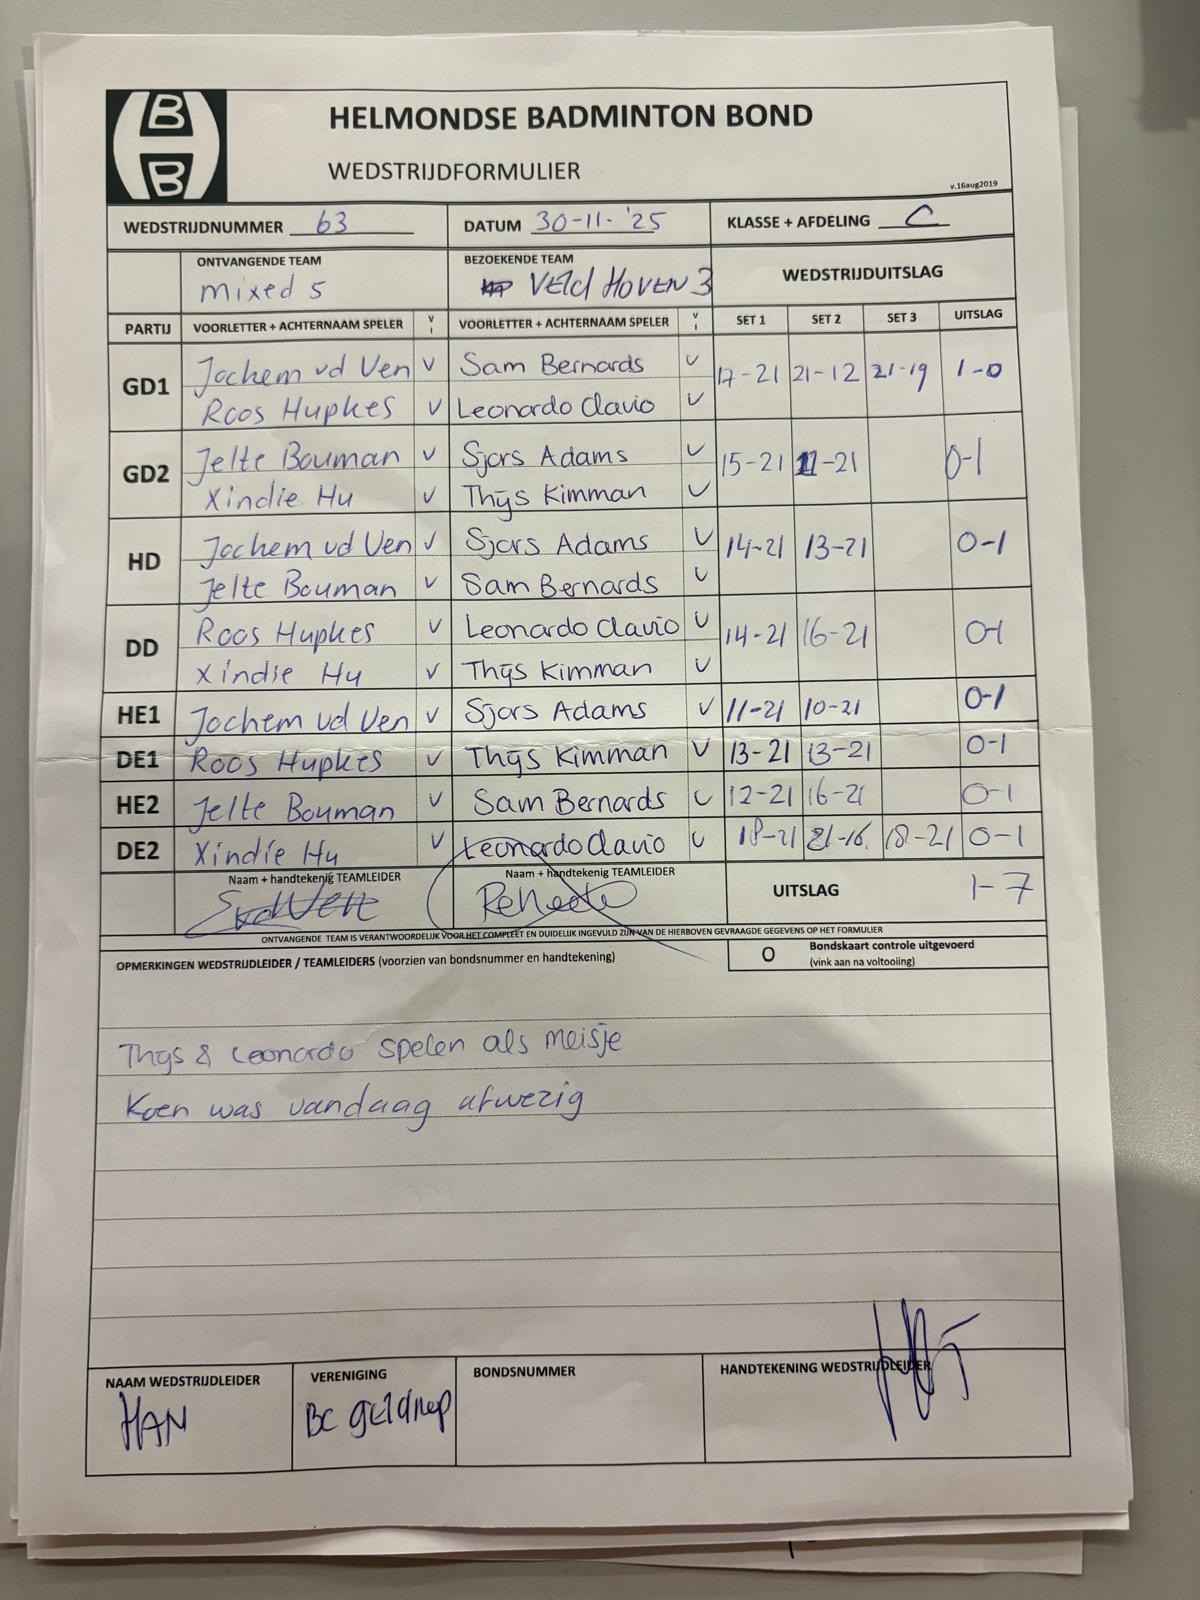 B
B
HELMONDSE BADMINTON BOND
WEDSTRIJDFORMULIER
v.16aug2019
WEDSTRIJDNUMMER 63 DATUM 30-11-'25 KLASSE + AFDELING C
ONTVANGENDE TEAM BEZOEKENDE TEAM WEDSTRIJDUITSLAG
mixed 5 VELdHOVEN 3
PARTIJ VOORLETTER + ACHTERNAAM SPELER V I VOORLETTER + ACHTERNAAM SPELER V I SET 1 SET 2 SET 3 UITSLAG
GD1 Jochem vd Ven V Sam Bernards V 17-21 21-12 21-19 1-0
Roos Hupkes V Leonardo Clavio V
GD2 Jelte Bouman V Sjors Adams V 15-21 11-21 0-1
Xindie Hu V Thijs Kimman V
HD Jochem vd Ven V Sjors Adams V 14-21 13-21 0-1
Jelte Bouman V Sam Bernards V
DD Roos Hupkes V Leonardo Clavio V 14-21 16-21 0-1
Xindie Hu V Thijs Kimman V
HE1 Jochem vd Ven V Sjors Adams V 11-21 10-21 0-1
DE1 Roos Hupkes V Thijs Kimman V 13-21 13-21 0-1
HE2 Jelte Bouman V Sam Bernards V 12-21 16-21 0-1
DE2 Xindie Hu V Leonardo Clavio V 18-21 21-16 18-21 0-1
Naam + handtekenig TEAMLEIDER Naam + handtekenig TEAMLEIDER UITSLAG 1-7
ONTVANGENDE TEAM IS VERANTWOORDELIJK VOOR HET COMPLEET EN DUIDELIJK INGEVULD ZIJN VAN DE HIERBOVEN GEVRAAGDE GEGEVENS OP HET FORMULIER
OPMERKINGEN WEDSTRIJDLEIDER / TEAMLEIDERS (voorzien van bondsnummer en handtekening) O Bondskaart controle uitgevoerd
(vink aan na voltooiing)
Thijs & Leonardo spelen als meisje
Koen was vandaag afwezig
NAAM WEDSTRIJDLEIDER VERENIGING BONDSNUMMER HANDTEKENING WEDSTRIJDLEIDER
HAN BC geldrop